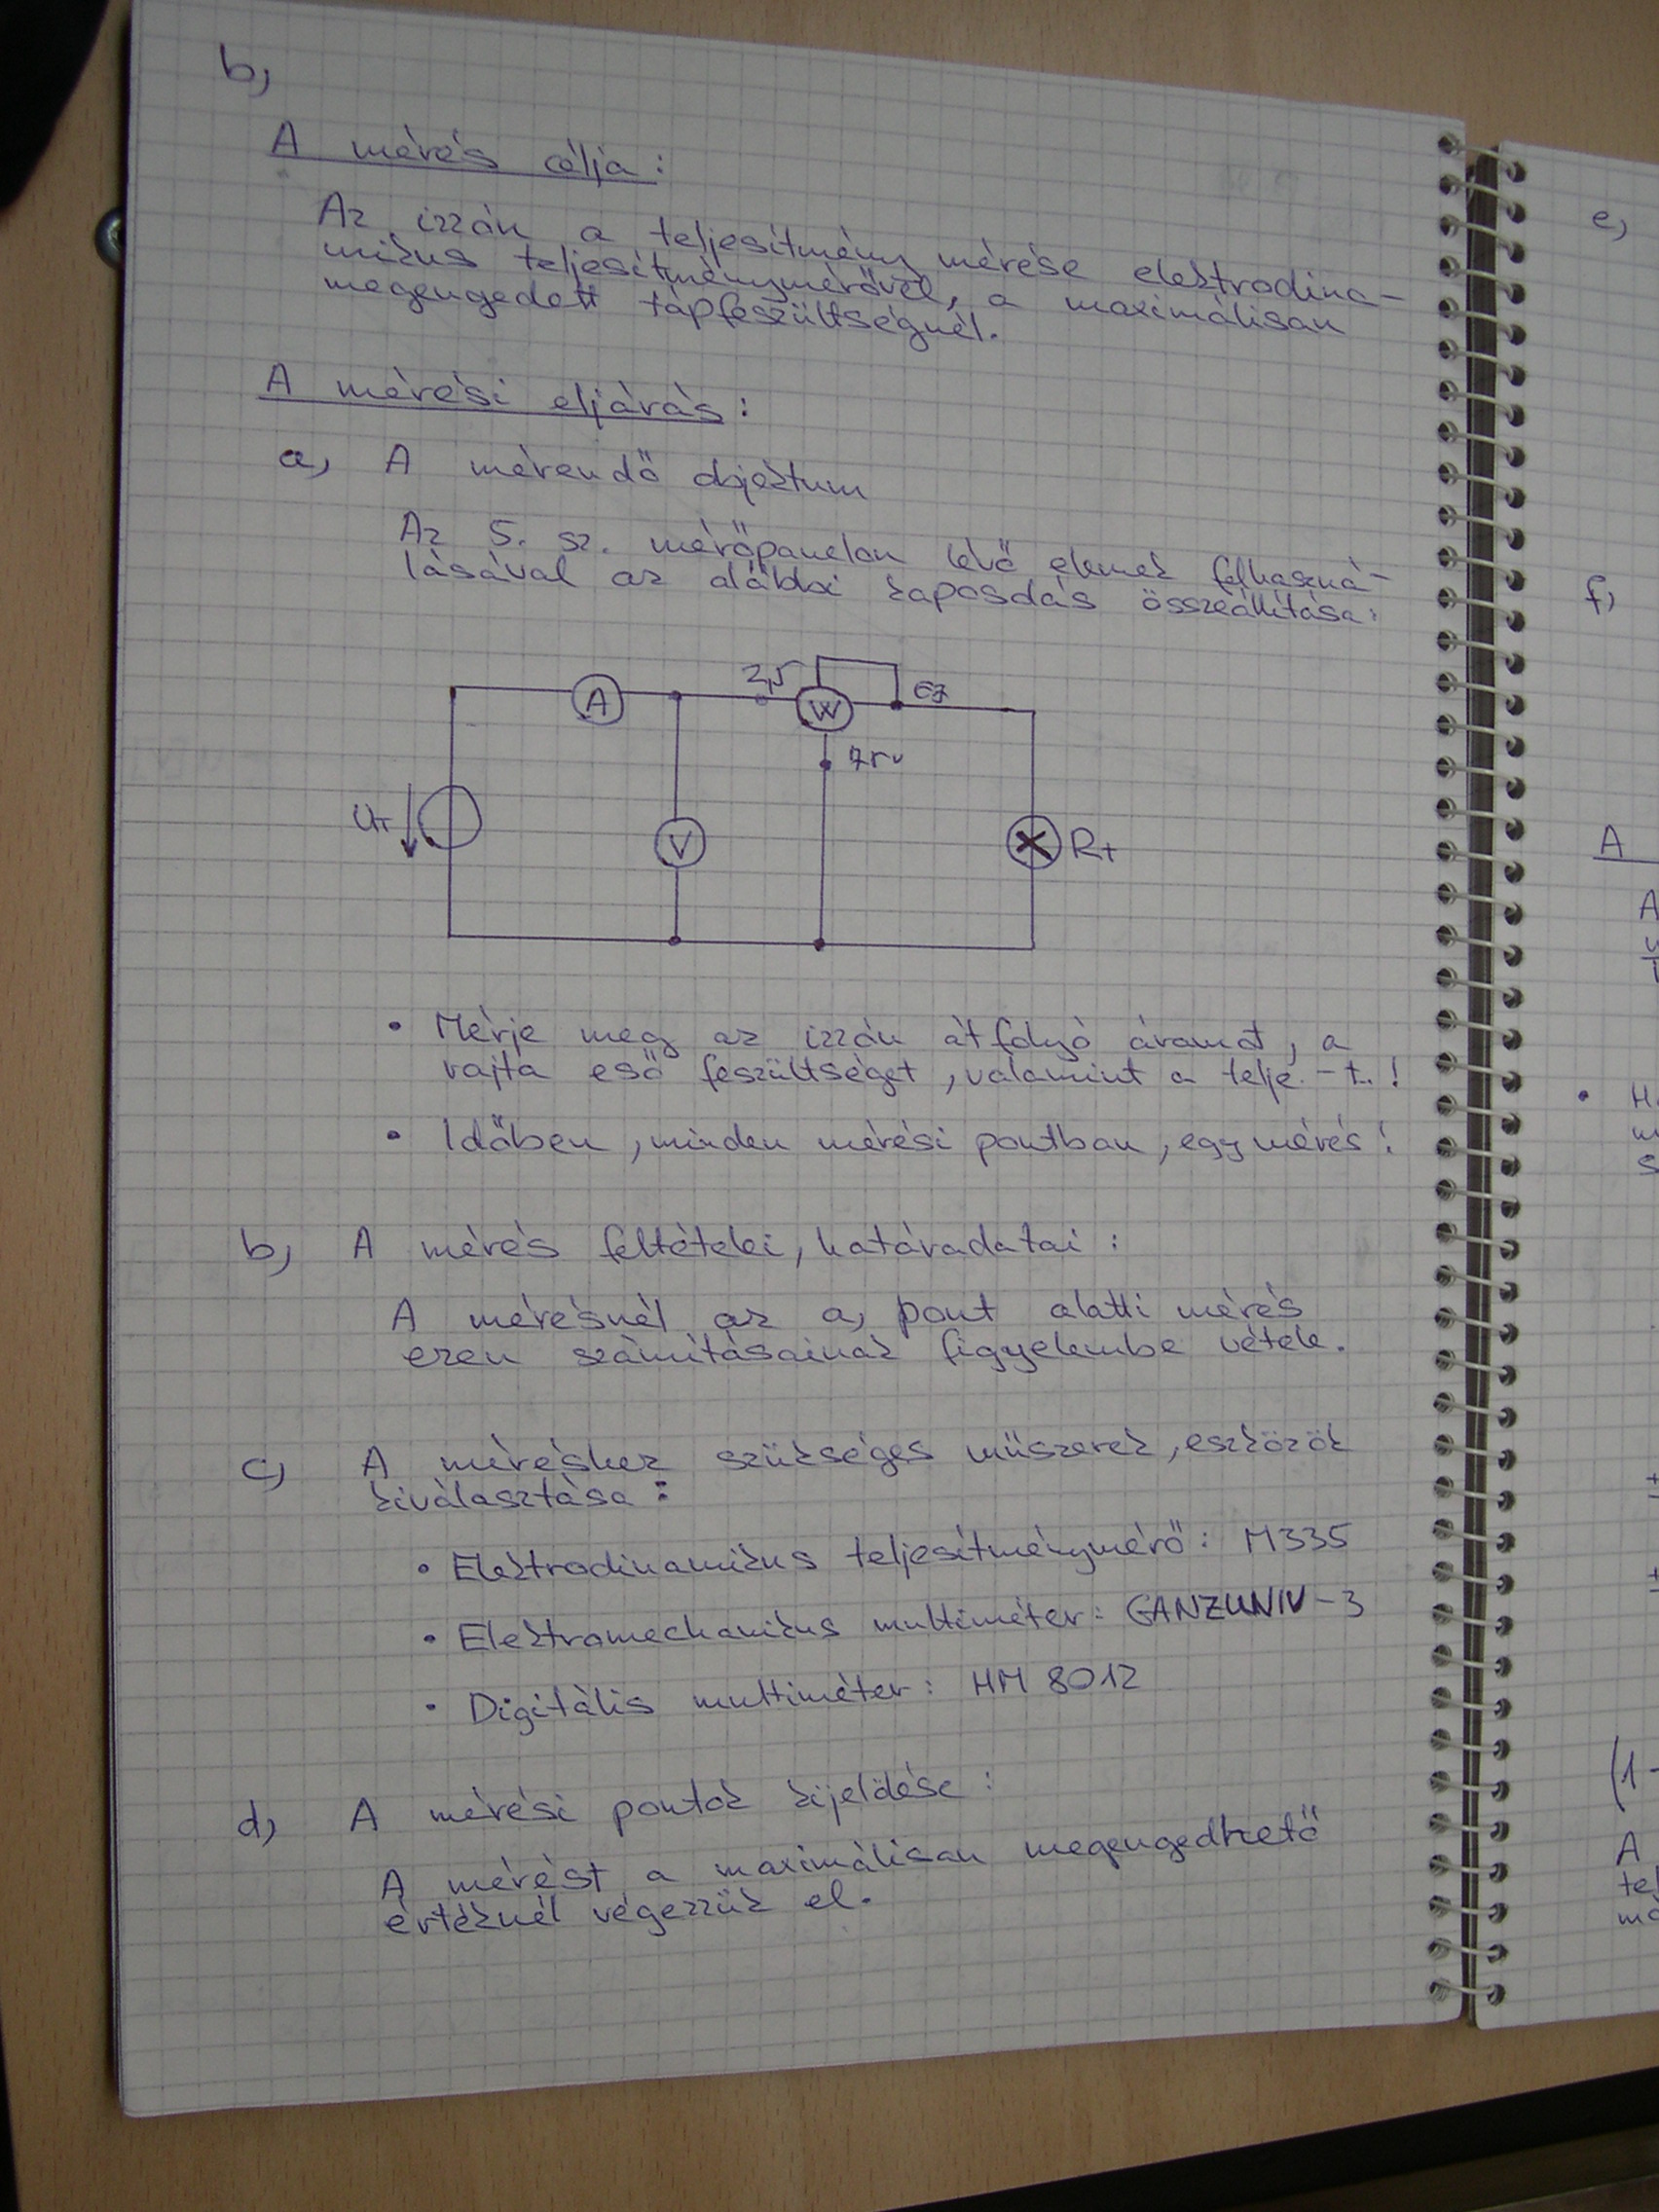 b,
A mérés célja:
Az izzón a teljesítmény mérése elektrodina-
mikus teljesítménymérővel, a maximálisan
megengedett tápfeszültségnél.
A mérési eljárás:
a, A mérendő objektum
Az 5. sz. mérőpanelon lévő elemek felhaszná-
lásával az alábbi kapcsolás összeállítása:
2,5
A
W
75V
UT
V
Rt
• Mérje meg az izzón átfolyó áramot, a
rajta eső feszültséget, valamint a telje.-t.!
• Időben, minden mérési pontban, egy mérés!
b, A mérés feltételei, határadatai:
A mérésnél az a, pont alatti mérés
ezen számításainak figyelembe vétele.
c, A méréshez szükséges műszerek, eszközök
kiválasztása:
• Elektrodinamikus teljesítménymérő: M335
• Elektromechanikus multiméter: GANZUNIV-3
• Digitális multiméter: HM 8012
d, A mérési pontok kijelölése:
A mérést a maximálisan megengedhető
értéknél végezzük el.
e,
f,
A
A
(1-
A